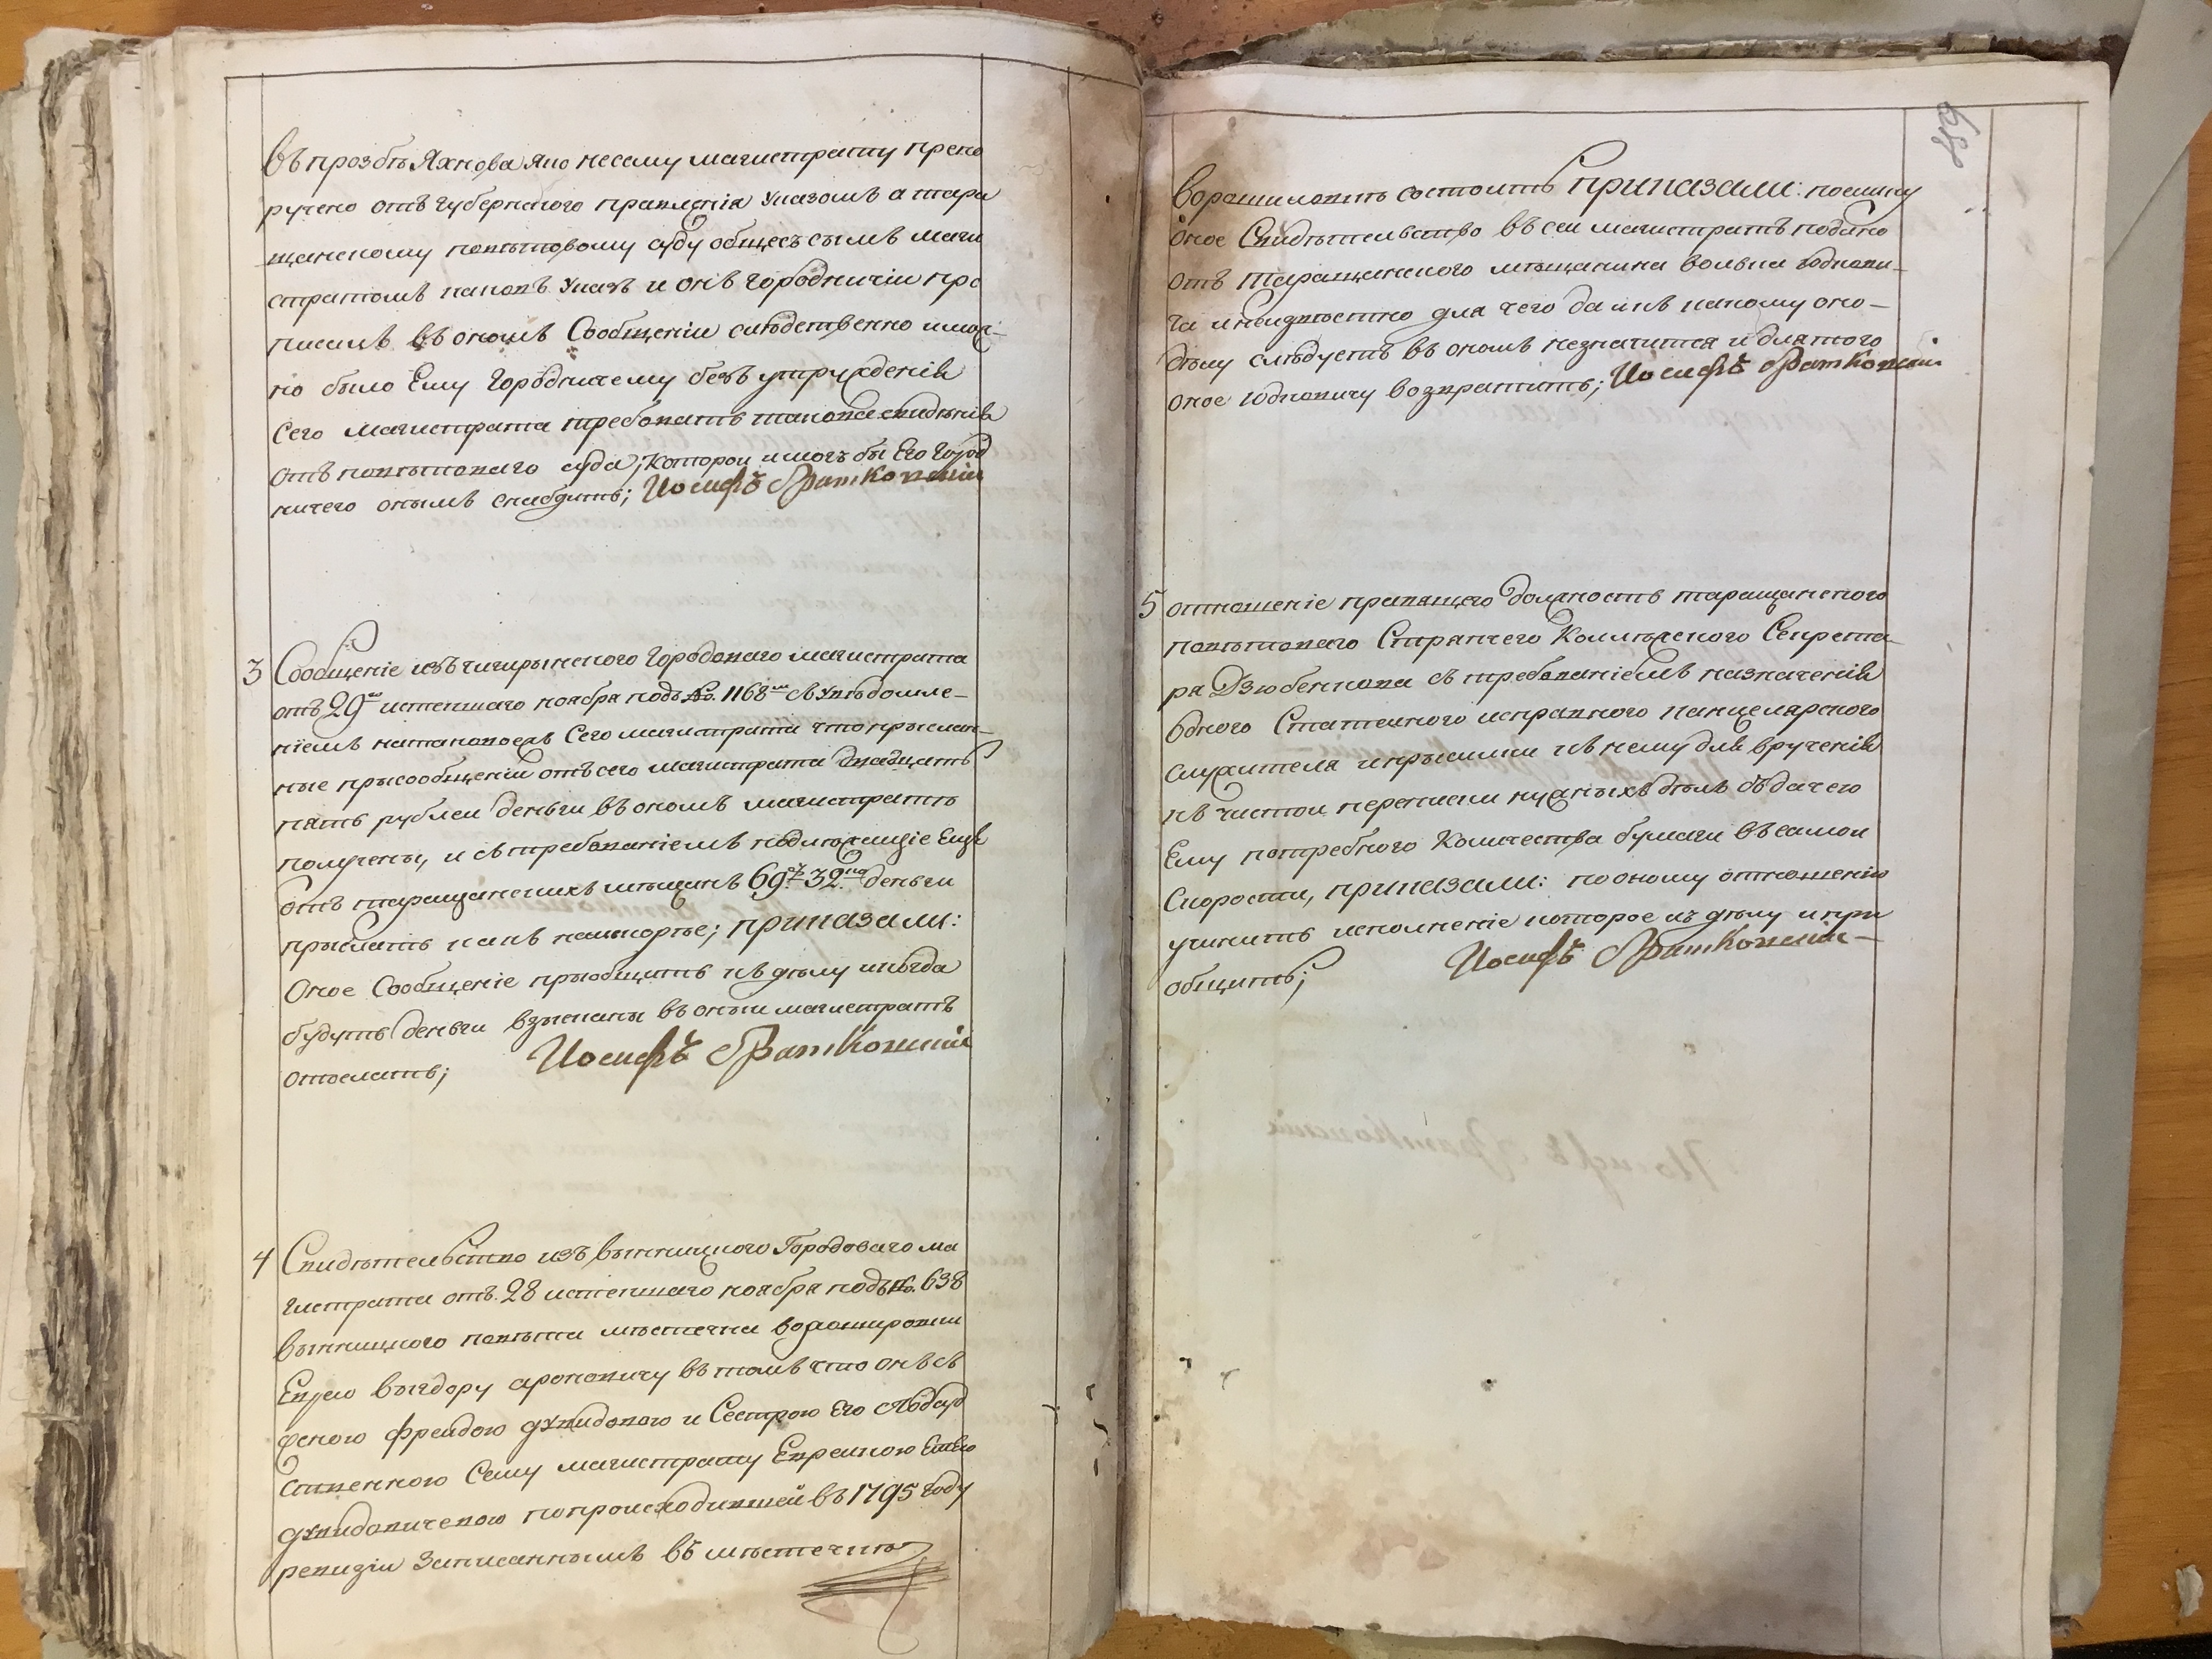 въ прозбѣ Яхнова яко несему магистрату препо
ручено отъ губернского правленія указомъ а тара
щанскому поветовому суду общесъ сымъ маги
стратомъ каковъ указъ и онъ городничіи про
писалъ въ ономъ Сообщеніи слѣдственно можа-
но было Ему Городничему безъ утружденія
Сего Магистрата требовать таковаго сведенія
отъ поветоваго суда, которои и могъ бы Его Город
ничего онымъ снабдить; Иосифъ Братковскій
3 Сообщеніе изъ чигиринского Городоваго магистрата
отъ 29го истекшаго ноября подъ №. 1168мъ съ Увѣдомле-
ніемъ на таковоежъ Сего магистрата что прислан-
ные присообщеніи отъ сего магистрата двадцать
пять рублеи деньги въ ономъ магистратѣ
получены, и съ требованіемъ подлежащіе Еще
отъ таращанскихъ мѣщанъ 69ру 32ко деньги
прислать какъ наискорѣе; приказали:
Оное Сообщеніе пріобщить къ дѣлу и когда
будутъ деньги взысканы въ оныи магистратъ
отослать; Иосифъ Братковскій
4 Свидѣтельство изъ винницкого Городоваго ма
гистрата отъ 28 истекшаго ноября подъ №. 638
винницкого повета мѣстечка ворошировки
Еврею вигдору ароновичу въ томъ что онъ съ
женою фреидою духвидовою и Сестрою Его
ственного Сему магистрату Евреикою
духвидовичевою по происходившей въ 1795 году
ревизіи записаннымъ въ мѣстечкѣ
489
ворошиловкѣ состоитъ приказали: поелику
оное Свидѣтельство въ сеи магистратъ подано
отъ таращанского мѣщанина волька юдкови-
ча и неизвѣстно для чего да и къ какому оно-
дѣлу слѣдуетъ въ ономъ незначится и для того
оное юдковичу возвратить; Иосифъ Братковскій
5 отношеніе правящего должность таращанского
поветоваго Стряпчего Коллежского Секрета-
ря Дзюбенкова съ требованіемъ назначенія
одного Статейного исправного канцелярского
служителя и присилки къ нему для врученія
къ чистои переписки нужныхъ дѣлъ съ дачего
Ему потребного Количества бумаги въ самои
Скорости, приказали: по оному отношенію
учинить исполненіе которое къ дѣлу и при
общить; Иосифъ Братковскій